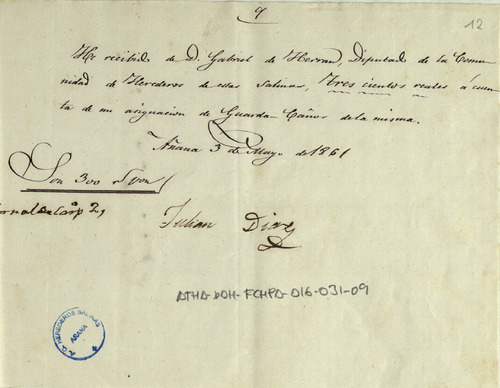 9
12
He recibido de D. Gabriel de Herran, Diputado de la Comu-
nidad de Herederos de estas Salinas, Tres cientos reales á cuen-
ta de mi asignacion de Guarda-Caños de la misma.
Añana 3 de Mayo de 1861
Son 300
Julian Diaz
ATHA-DOH-FCHPA-016-031-09
HEREDEROS SALINAS
AÑANA